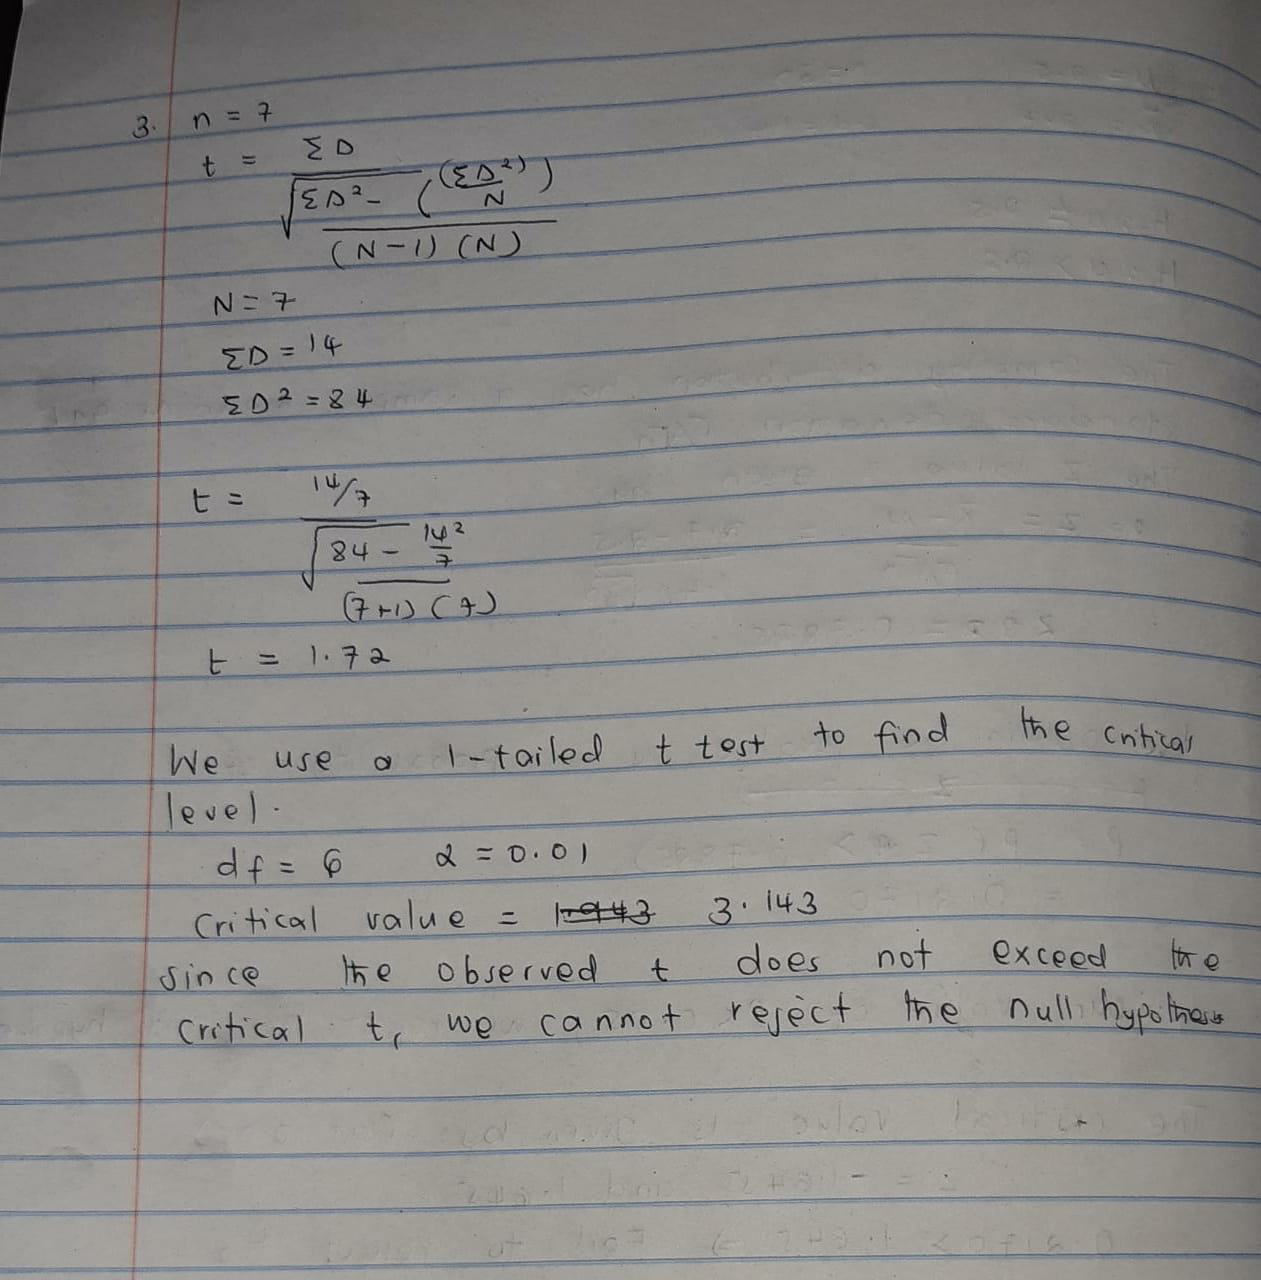 3. n = 7
t = ΣD
√ΣD² - ((ΣD²)/N)
(N-1) (N)
N = 7
ΣD = 14
ΣD² = 84
t = 14/7
√84 - 14²/7
(7+1) (7)
t = 1.72
We use a 1-tailed t test to find the critical
level.
df = 6 α = 0.01
Critical value = 1.943 3.143
since the observed t does not exceed the
critical t, we cannot reject the null hypothesis